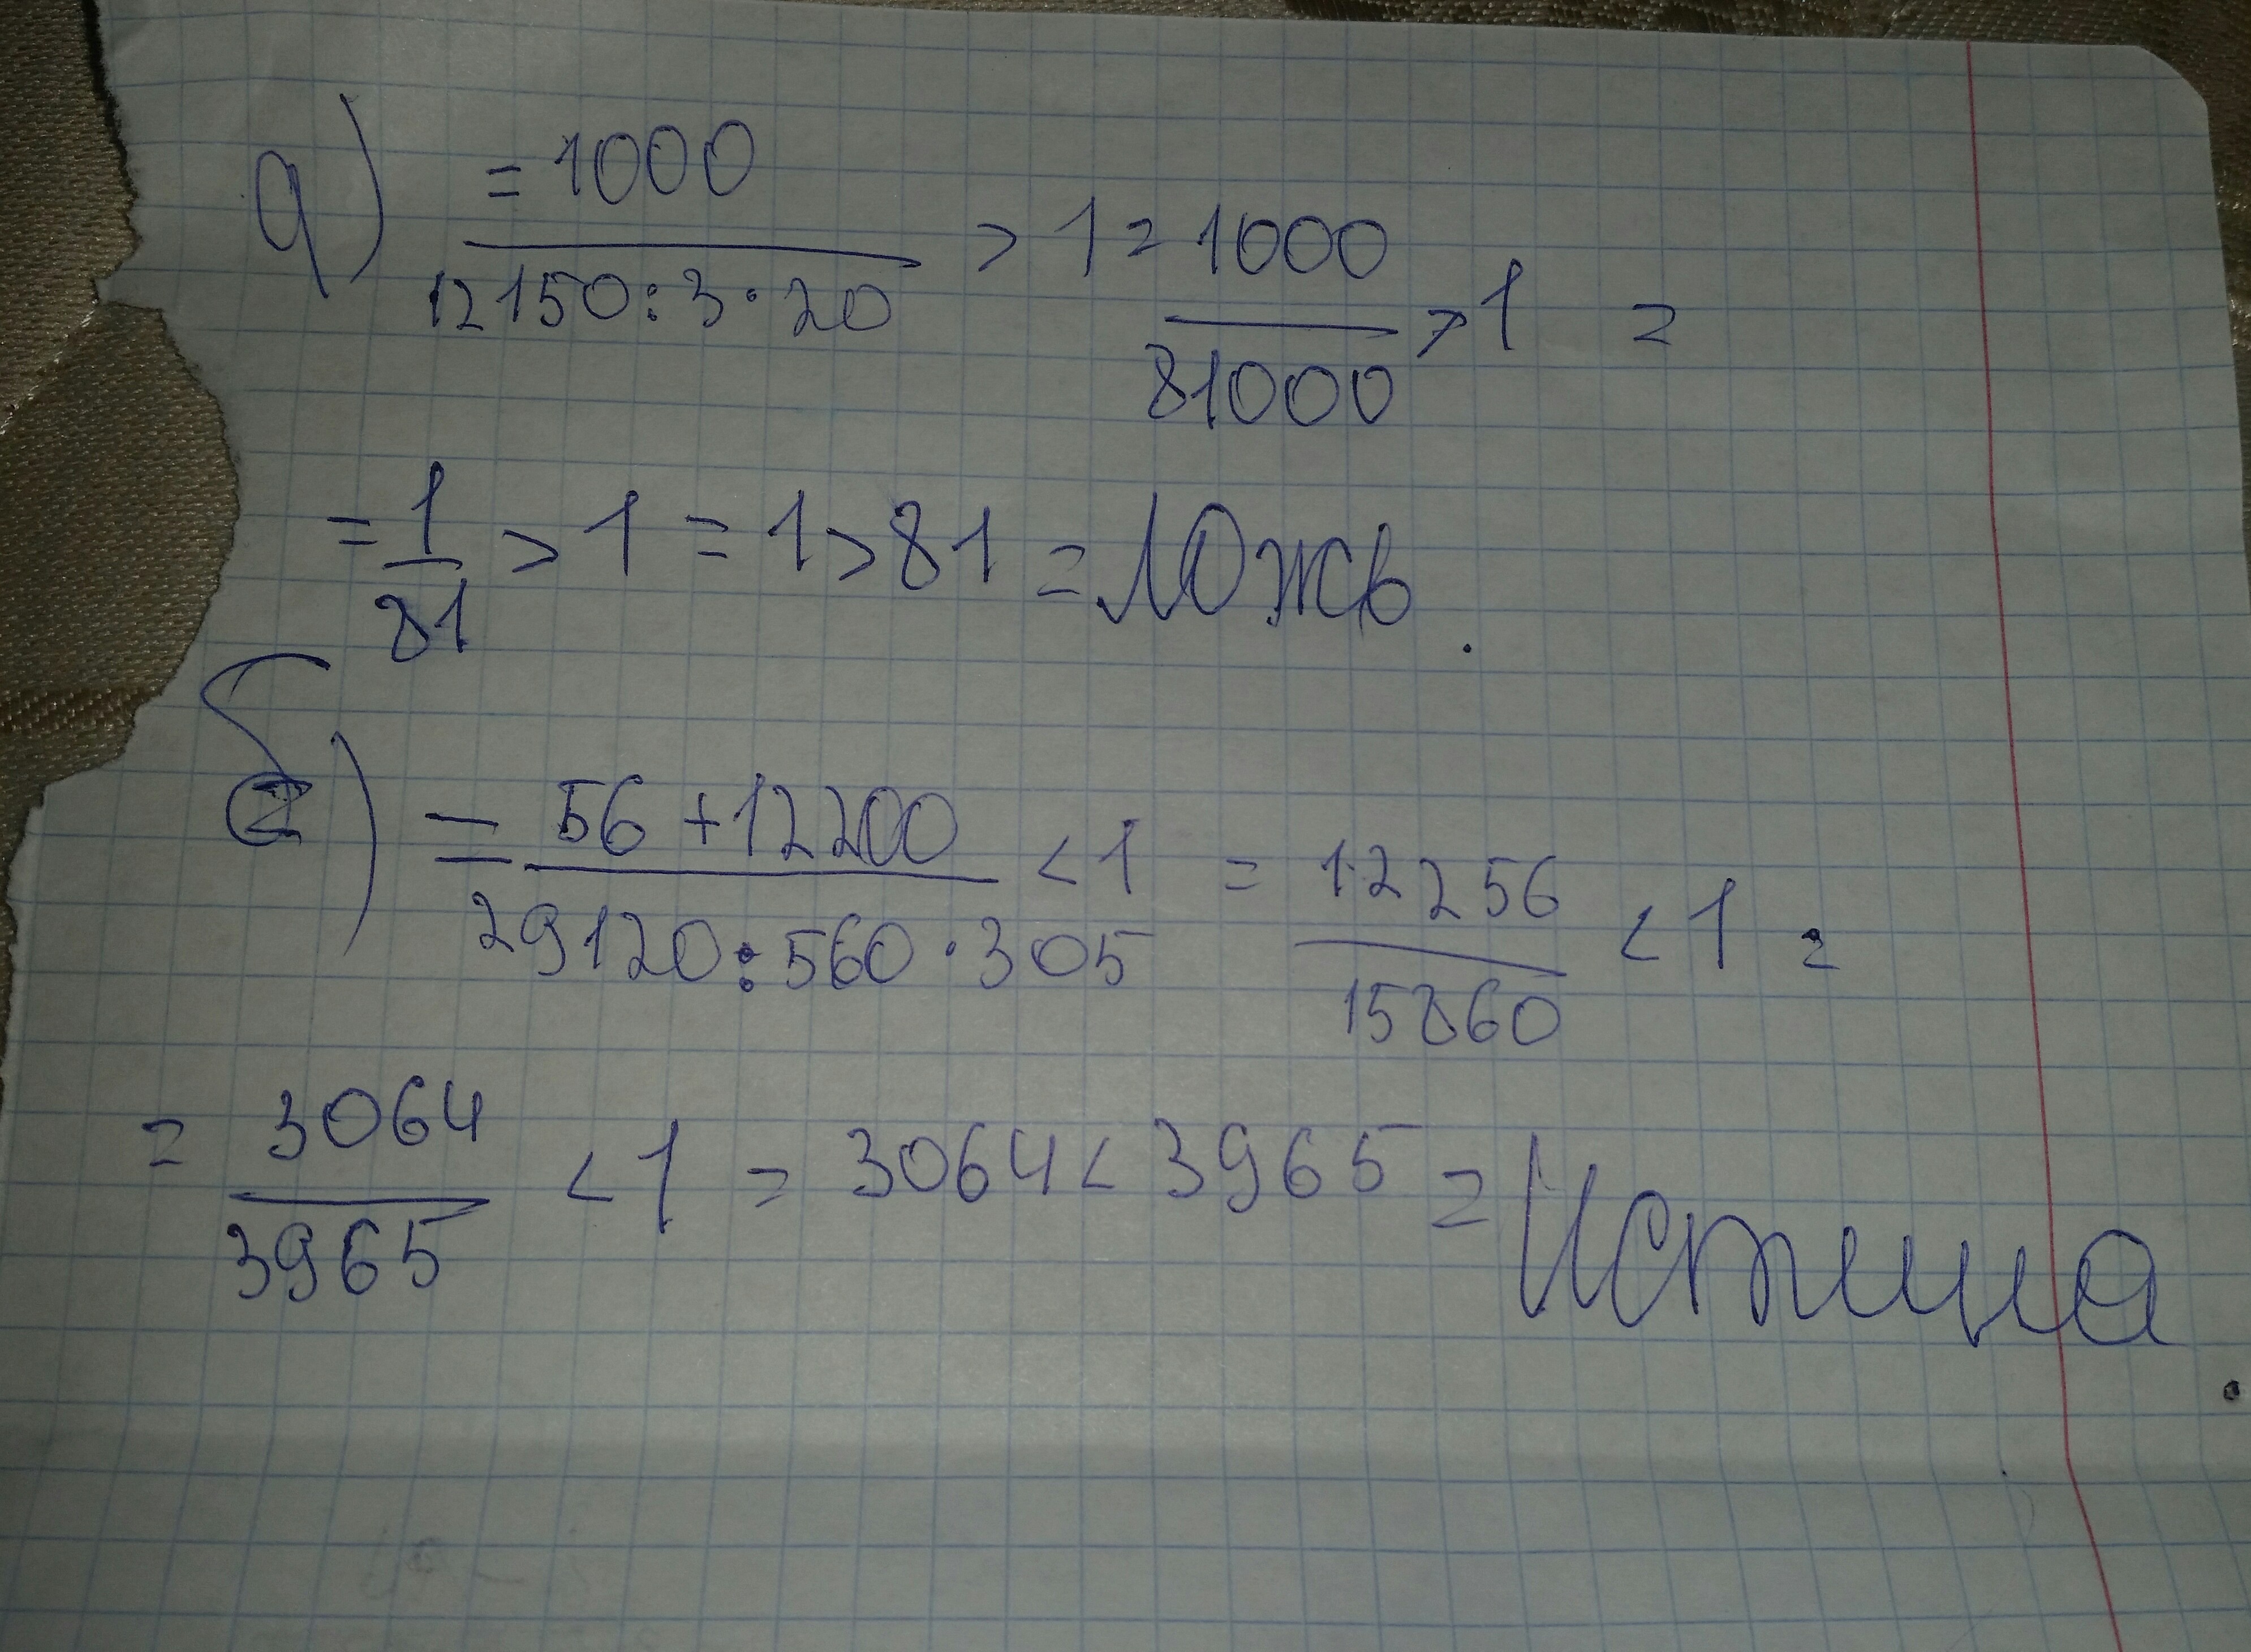 а) = 1000 / 12150:3·20 > 1 = 1000 / 81000 > 1 =
= 1/81 > 1 = 1 > 81 = Ложь.
б) = 56 + 12200 / 29120:560·305 < 1 = 12256 / 15860 < 1 =
= 3064 / 3965 < 1 = 3064 < 3965 = Истина.